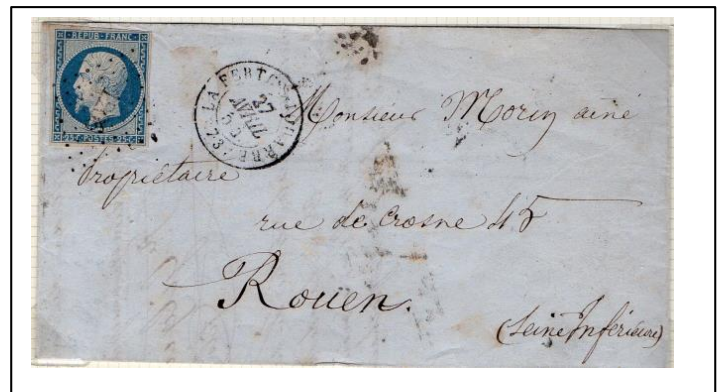 REPUB. FRANC.
25c. POSTES. 25c.
27
AVRIL
Monsieur Morin ainé
Propriétaire
rue de Crosne 45
Rouen.
(Seine Inférieure)